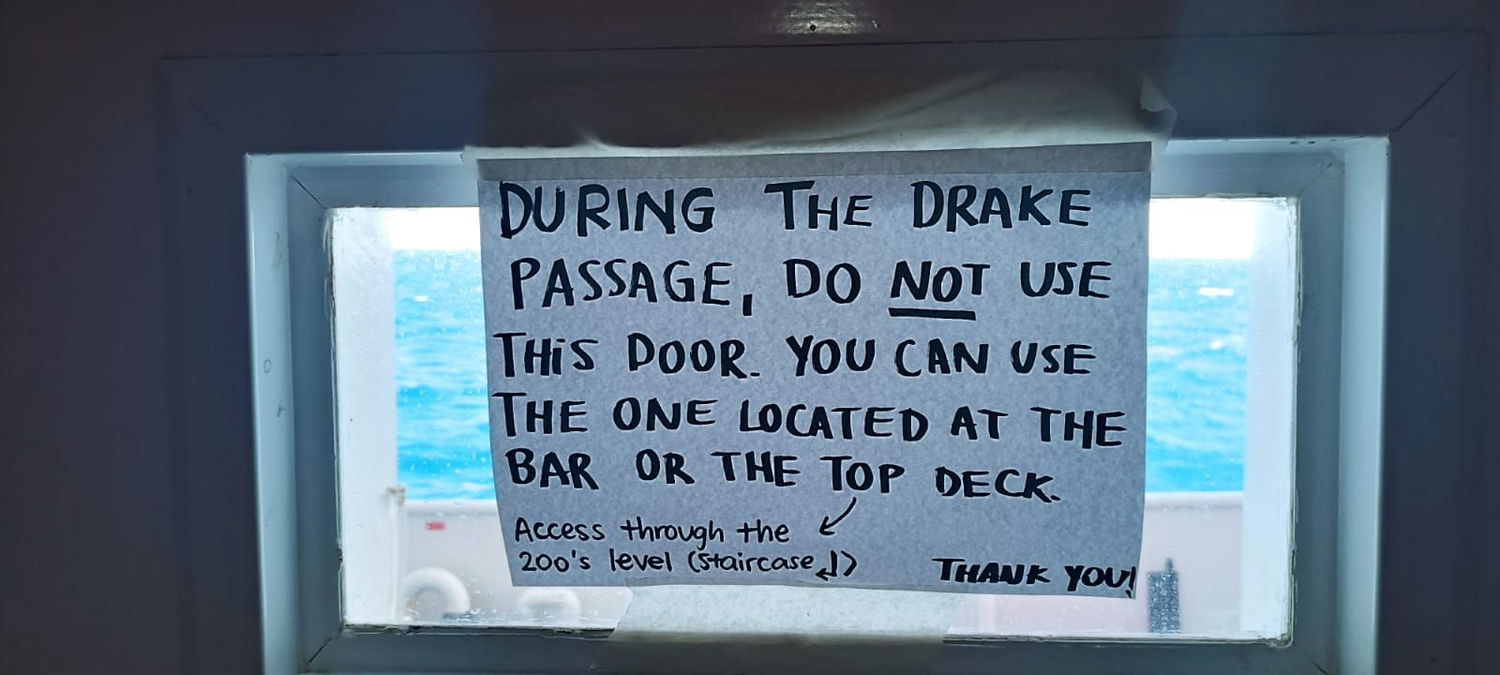 DURING THE DRAKE
PASSAGE, DO NOT USE
THiS DOOR. YOU CAN USE
THE ONE LOCATED AT THE
BAR OR THE TOP DECK.
Access through the
200's level (staircase ↲)
THANK YOU!